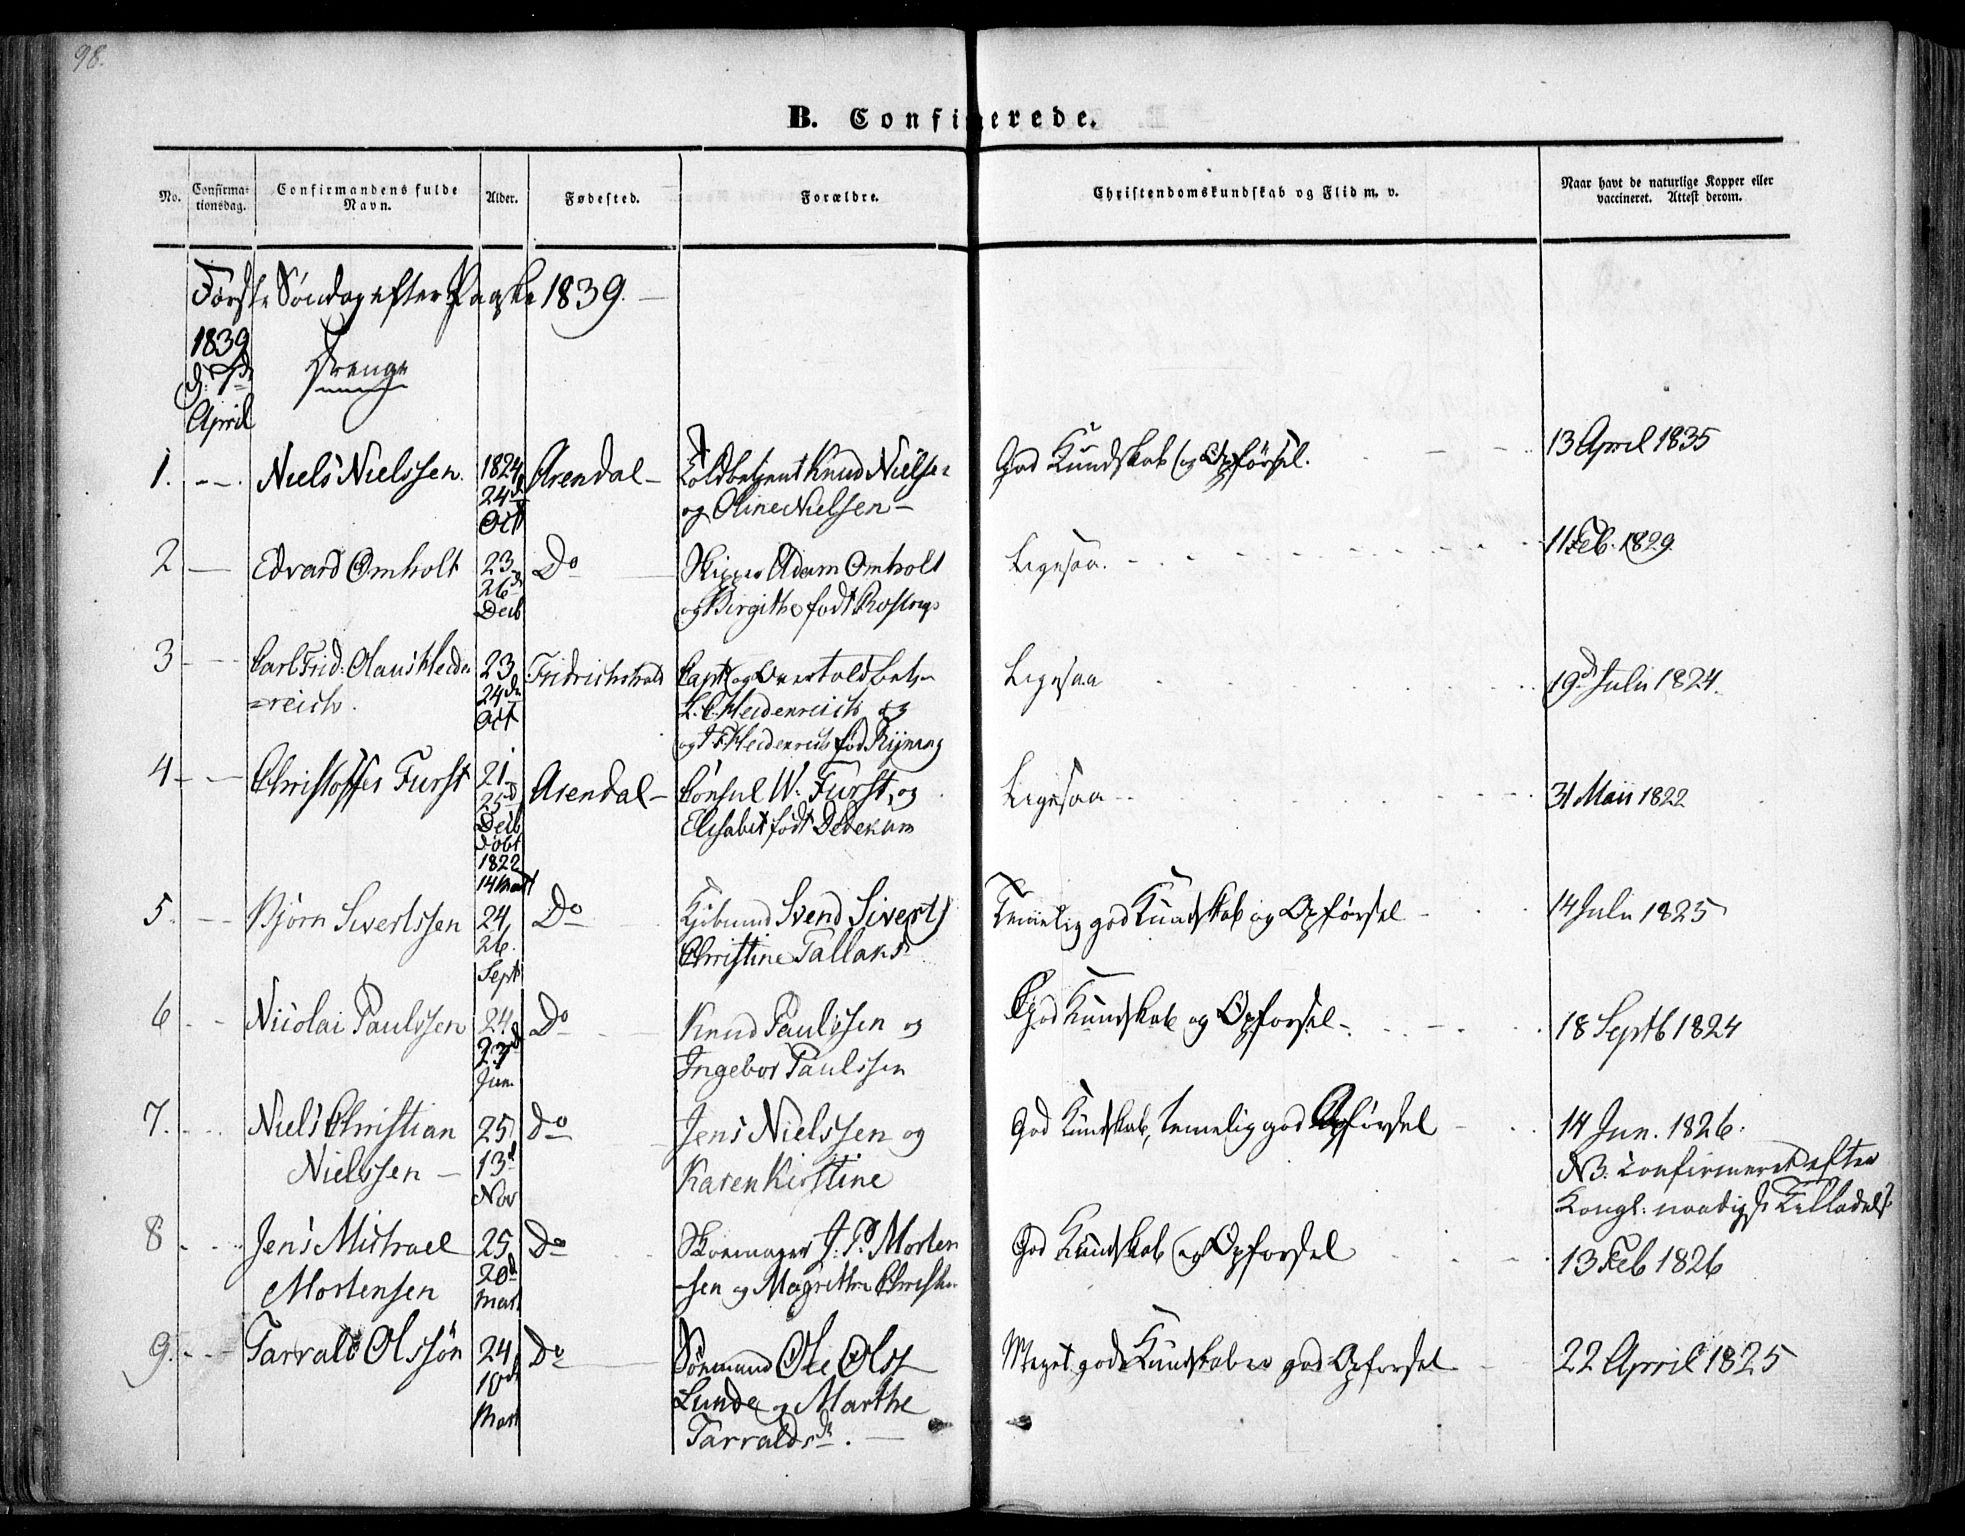 98.
B. Confirmerede.
No.
Confirma-
tionsdag.
Confirmandens fulde
Navn.
Alder.
Fødested.
Forældre.
Christendomskundskab og Flid m. v.
Naar havt de naturlige Kopper eller
vaccineret. Attest derom.
Første Søndag efter Paaske 1839.
1839
d: 7de
April
Drenge
1. Niels Nielssen. 1824 24de Oct Arendal
Toldbetjent Knud Nielsen
og Oline Nielsen
God Kundskab og Opførsel.
13 April 1835
2 Edvard Omholt 23 26de Decb Do
Skipper Adam Omholt
og Birgithe født
Ligesaa.
11 Feb. 1829
3 Carl Frid: Olaus Heiden
=reich. 23 24de Oct Fridrichshald
Capt og Overtoldbetj.
Heidenreich og
og Heidenreich fød
Ligesaa
19d Juli 1824.
4 Christoffer Furst 21 25d Decb døbt 1822 14 Mart Arendal
Consul W. Furst, og
Elisabet født Dedekam
Ligesaa
31 Maii 1822
5. Bjørn Sivertssen 24 26. Sept Do
Kjøbmand Svend Sivertss
Christine Tallaksd
Temelig god Kundskab og Opførsel
14 Juli 1825
6 Nicolai Paulssen 24 23d Jun. Do
Knud Paulssen og
Ingebor Paulssen
God Kundskab og Opforsel
18 Septb 1824
7. Niels Christian
Nielssen 25 13d Nov do
Jens Nielssen og
Karen Kirstine
God Kundskab, temelig god Opførsel
14 Jun. 1826.
NB: Confirmeret efter
Kongl: naadigst Tilladelse
8 Jens Michael
Mortensen 25 20d Mart Do
Skoemager J: P. Morten
-sen og Magrethe
God Kundskab og Opforsel
13 Feb 1826
9. Tarrald Olssøn 24 10de Mart Do
Sømand Ole Olss
Lunde og Marthe
Tarraldsdr.
Meget gode Kundskaber god Opforsel
22 April 1825